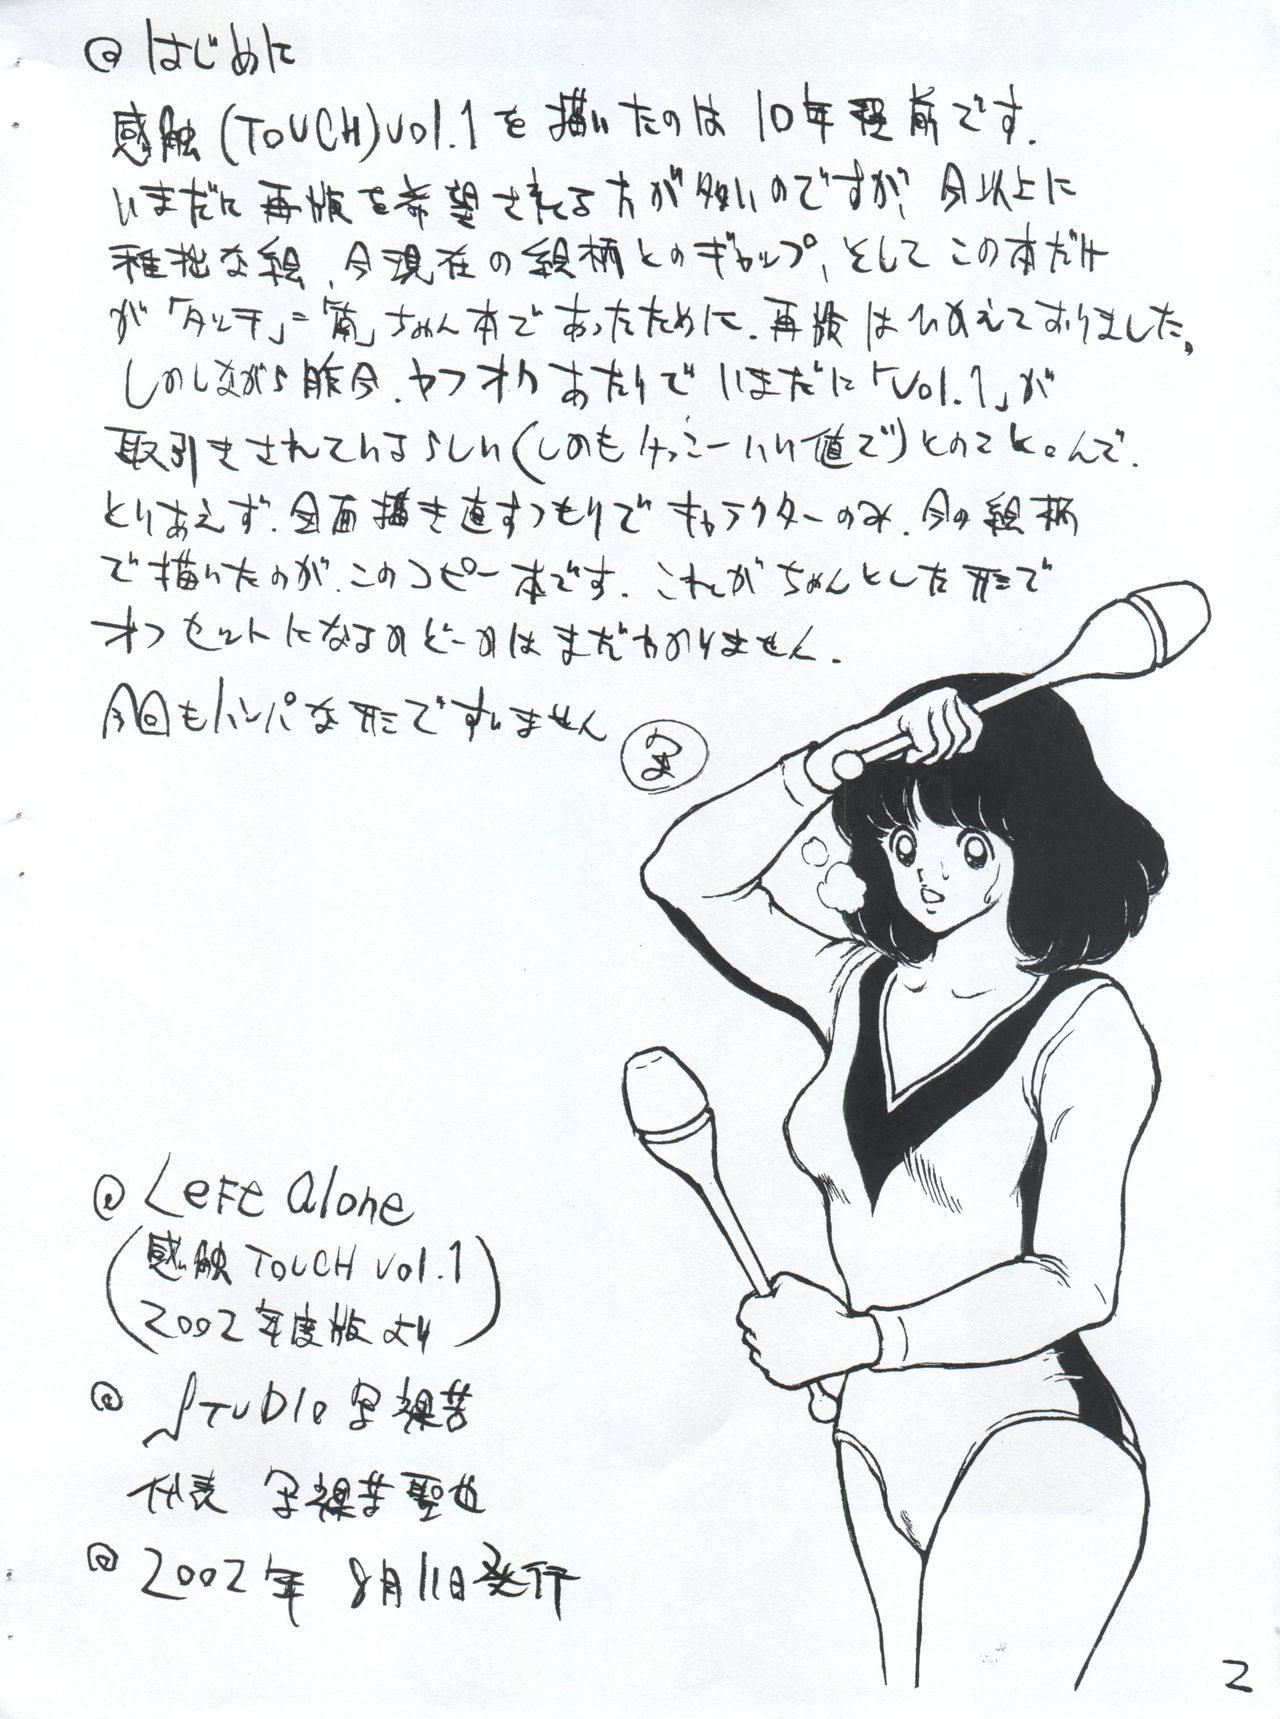 @ はじめに
感触(TOUCH)vol.1を描いたのは10年程前です.
いまだに再版を希望される方が多いのですが、今以上に
稚拙な絵、今現在の絵柄とのギャップ、そしてこの本だけ
が「タッチ」=「南」ちゃん本であったために、再版はひかえておりました。
しかしながら昨今、ヤフオクあたりでいまだに「Vol.1」が
取引きされているらしい(しかもけっこーいい値で)とのことなんで、
とりあえず、全面描き直すつもりでキャラクターのみ、今の絵柄
で描いたのが、このコピー本です. これがちゃんとした形で
オフセットになるかどーかはまだわかりません.
今回もハンパな形ですいません
@ Left alone
(感触 TOUCH vol.1
2002年度版より)
@ STUDIO 写裸苦
代表 写裸苦聖也
@ 2002年 8月11日発行
2